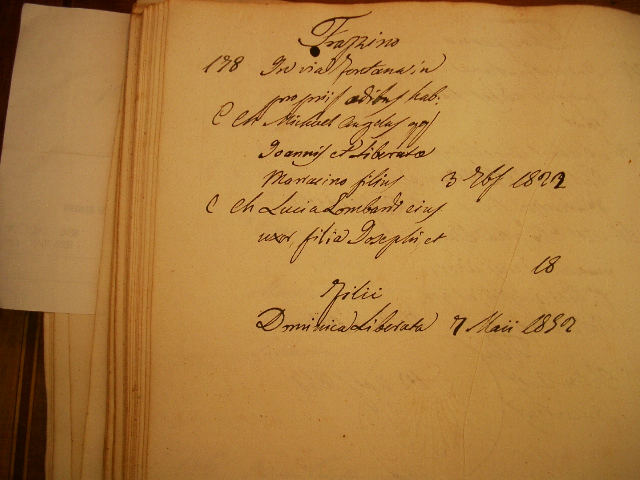 Frazzino
198 In via Fontana in
propriis ædibus hab:
C Ch Michael Angelus qq
Joannis et Liberatæ
Marazino filius 3 Xbs 1822
C Ch Lucia Lombardi eius
uxor filia Josephi et
18
Filii
Dominica Liberata 7 Maii 1852